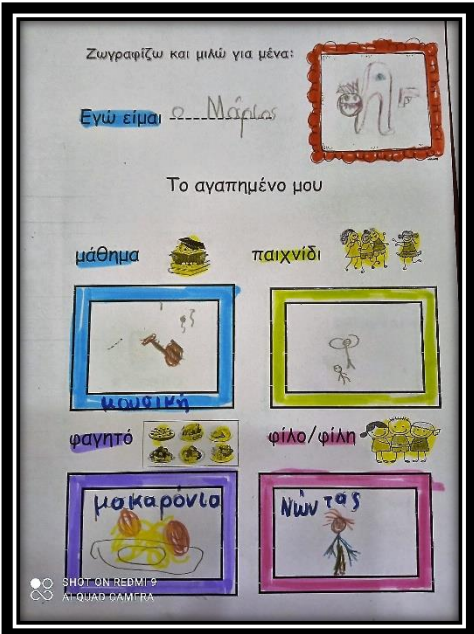 Ζωγραφίζω και μιλώ για μένα:
Εγώ είμαι ο Μάριος
Το αγαπημένο μου
μάθημα
παιχνίδι
μουσική
φαγητό
φίλο/φίλη
μακαρόνια
Νώντας
SHOT ON REDMI 9
AI QUAD CAMERA